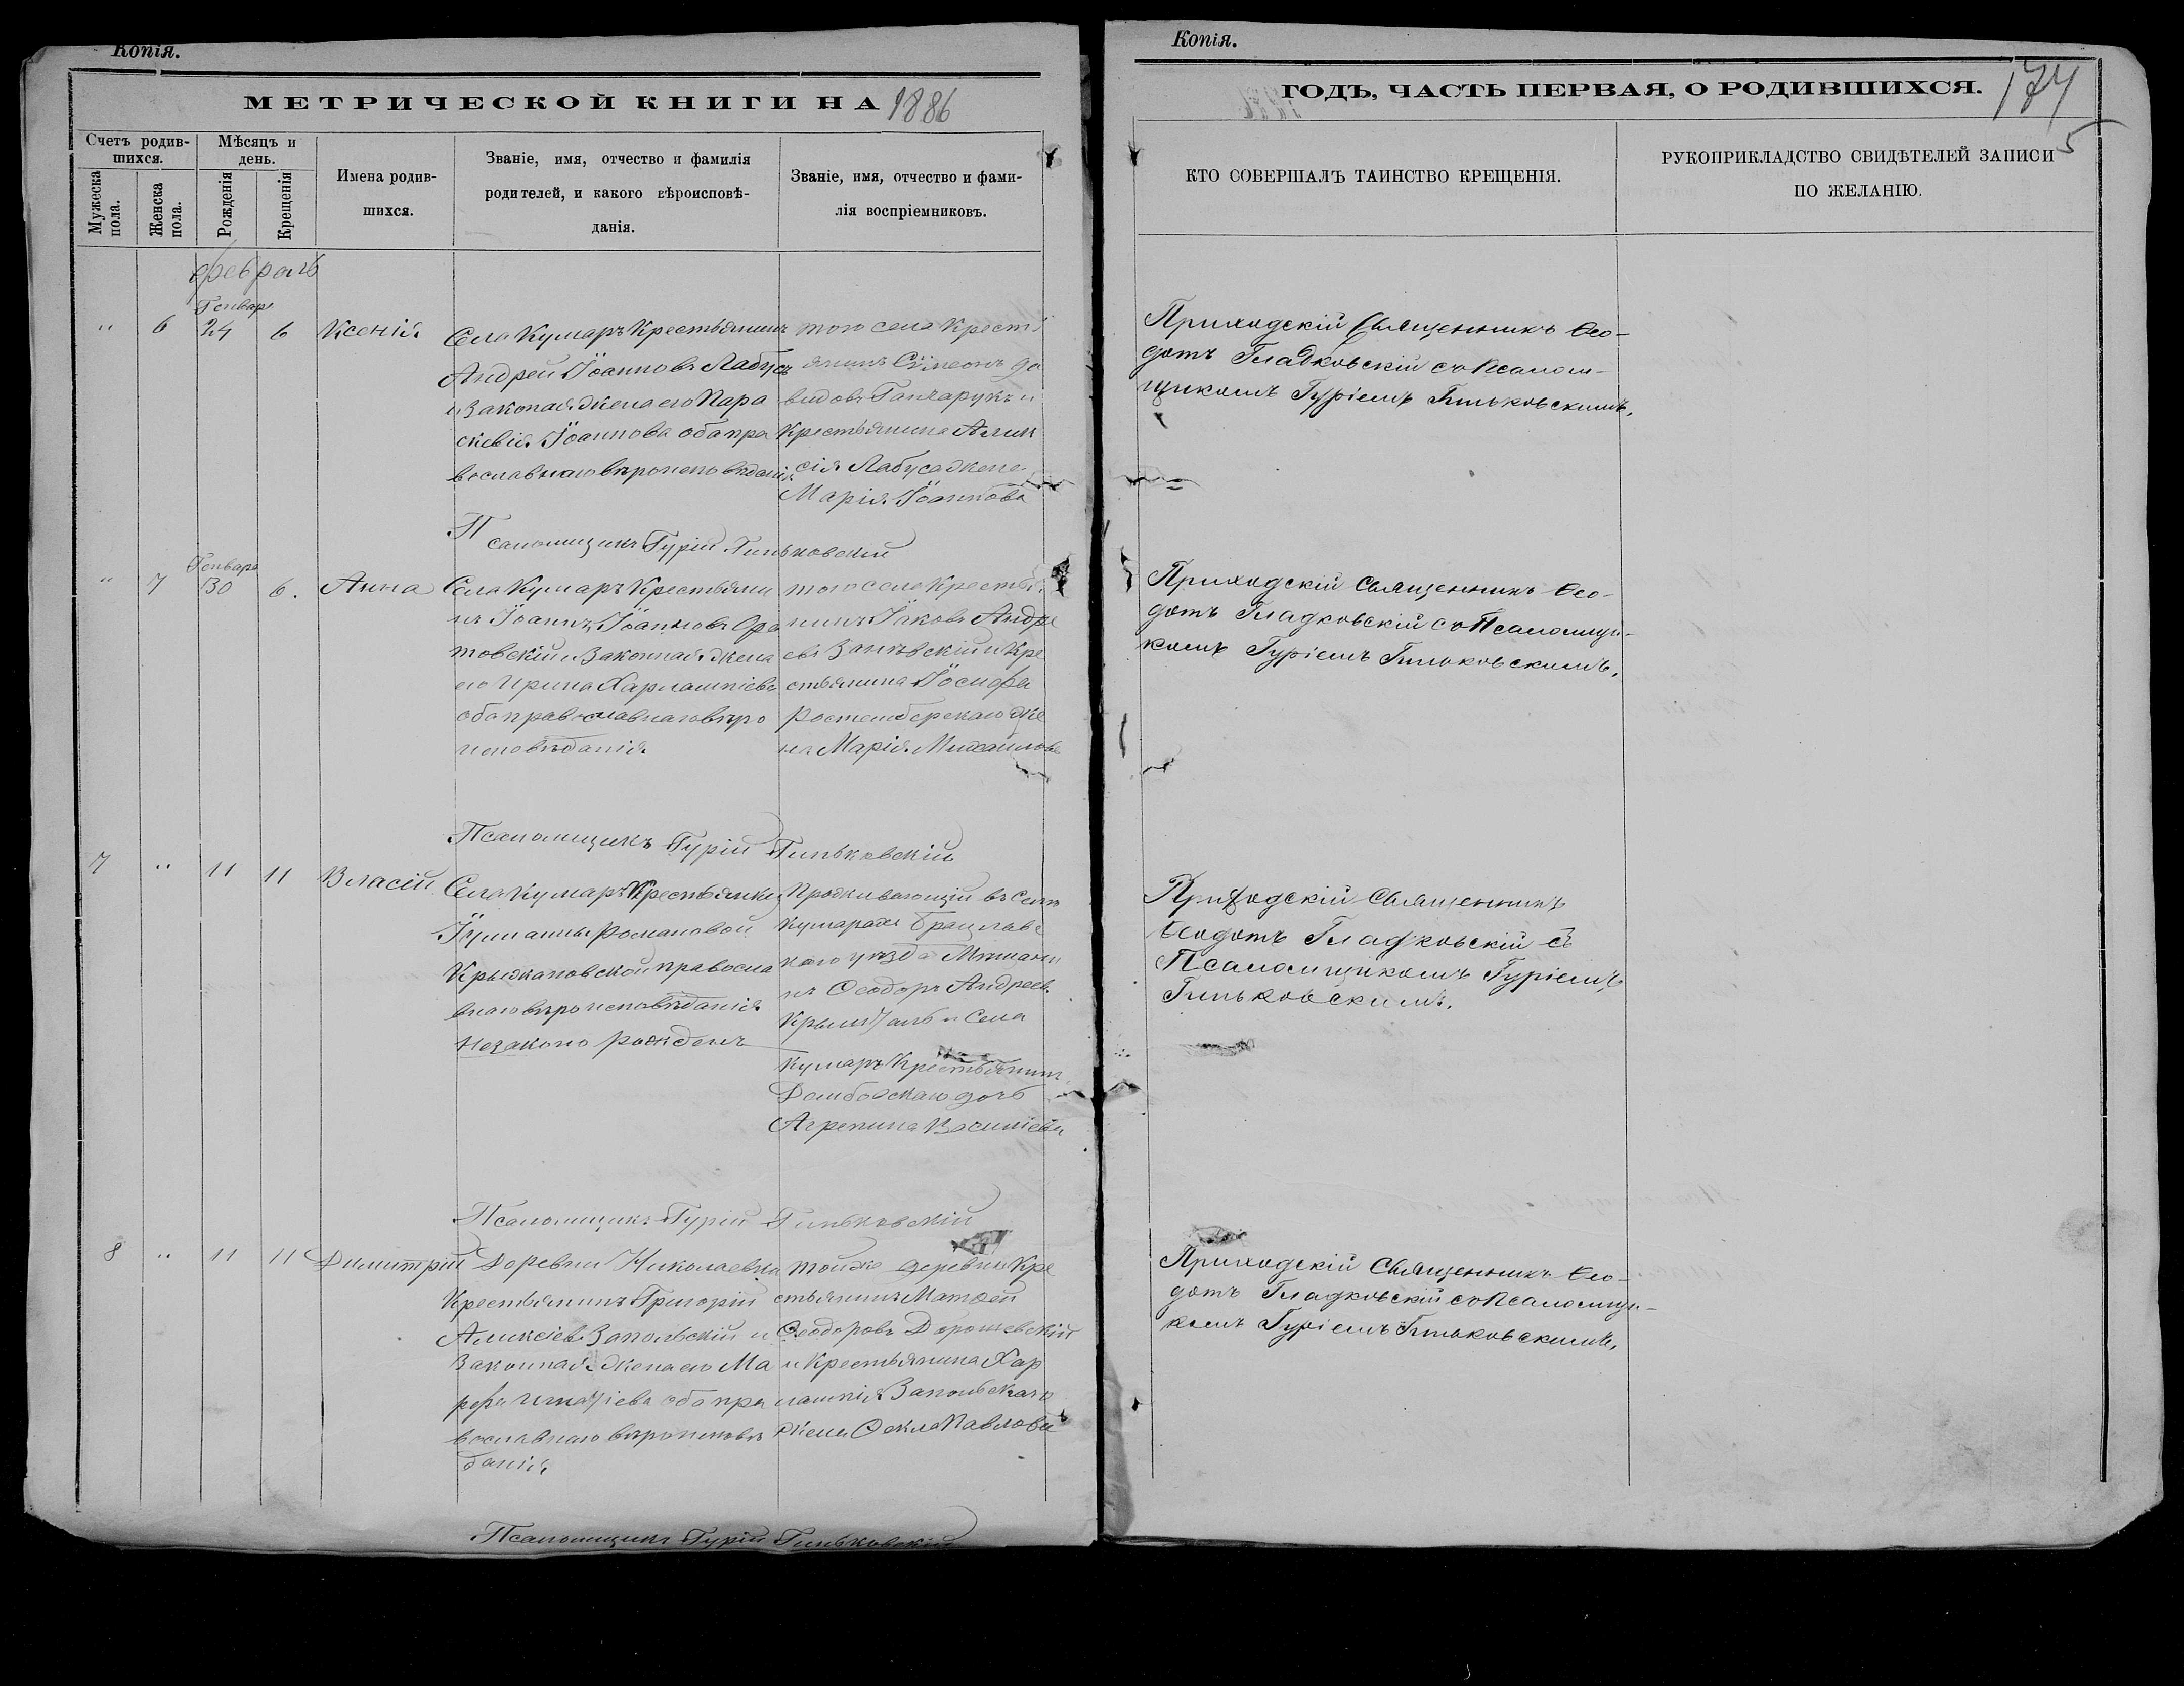 Копія.
МЕТРИЧЕСКОЙ КНИГИ НА 1886
Счетъ родив-
шихся.
Мужеска
пола.
Женска
пола.
Мѣсяцъ и
день.
Рожденія
Крещенія
Имена родив-
шихся.
Званіе, имя, отчество и фамилія
родителей, и какого вѣроисповѣ-
данія.
Званіе, имя, отчество и фами-
лія воспріемниковъ.
февраль
Генваря
" 6 24 6 Ксенія
Села Кумаръ Крестьянинъ
Андрей Іоанновъ Лабусъ
и Законая жена его Пара
скевія Іоаннова оба пра
вославнаго вѣроисповѣданія
того села Кресті
янинъ Сімеонъ До
видовъ Ганчарукъ и
Крестьянина Алек
сія Лабуса жена
Марія Іоаннова
Псаломщикъ Гурій Гиньковскій
Генваря
" 7 30 6. Анна
Села Кумаръ Крестьяни
нъ Іоаннъ Іоанновъ Ора
товскій и Законная жена
его Ирина Харлампіева
оба православнаго вѣро
исповѣданія
того села Крестья
нинъ Іаковъ Андре
евъ Заневскій и Кре
стьянина Іосифа
жe
на Марія Михайлова
Псаломщикъ Гурій Гиньковскій
7 " 11 11 Власій
Села Кумаръ Крестьянки
Іуліанны Романовой
Крыжановской правосла
внаго вѣроисповѣданія
Незаконо рожденъ
Проживающій въ Селѣ
Кумарахъ Брацлавс
каго уѣзда Мѣщани
нъ Ѳеодоръ Андреев.
и Села
Кумаръ Крестьянина
Домбровскаго дочь
Агрепина Василіева
Псаломщикъ Гурій Гиньковскій
8 " 11 11 Димитрій
Деревни Николаевки
Крестьянинъ Григорій
Алексіевъ Запольскій и
Законная жена его Ма
рфа Игнатіева оба пра
вославнаго вѣроисповѣ
данія
той же деревни Кре
стьянинъ Матѳей
Ѳеодоровъ Дорошевскій
и Крестьянина Хар
лампія Запольскаго
жена Ѳекла Павлова
Псаломщикъ Гурій Гиньковскій
Копія.
ГОДЪ, ЧАСТЬ ПЕРВАЯ, О РОДИВШИХСЯ.
174
5
КТО СОВЕРШАЛЪ ТАИНСТВО КРЕЩЕНІЯ.
РУКОПРИКЛАДСТВО СВИДѢТЕЛЕЙ ЗАПИСИ
ПО ЖЕЛАНІЮ.
Приходскій Священникъ Ѳео-
дотъ Гладковскій съ Псалом-
щикомъ Гуріемъ Гиньковскимъ.
Приходскій Священникъ Ѳео-
дотъ Гладковскій съ Псаломщи-
комъ Гуріемъ Гиньковскимъ.
Приходскій Священникъ
Ѳеодотъ Гладковскій съ
Псаломщикомъ Гуріемъ
Гиньковскимъ.
Приходскій Священникъ Ѳео-
дотъ Гладковскій съ Псаломщи-
комъ Гуріемъ Гиньковскимъ.